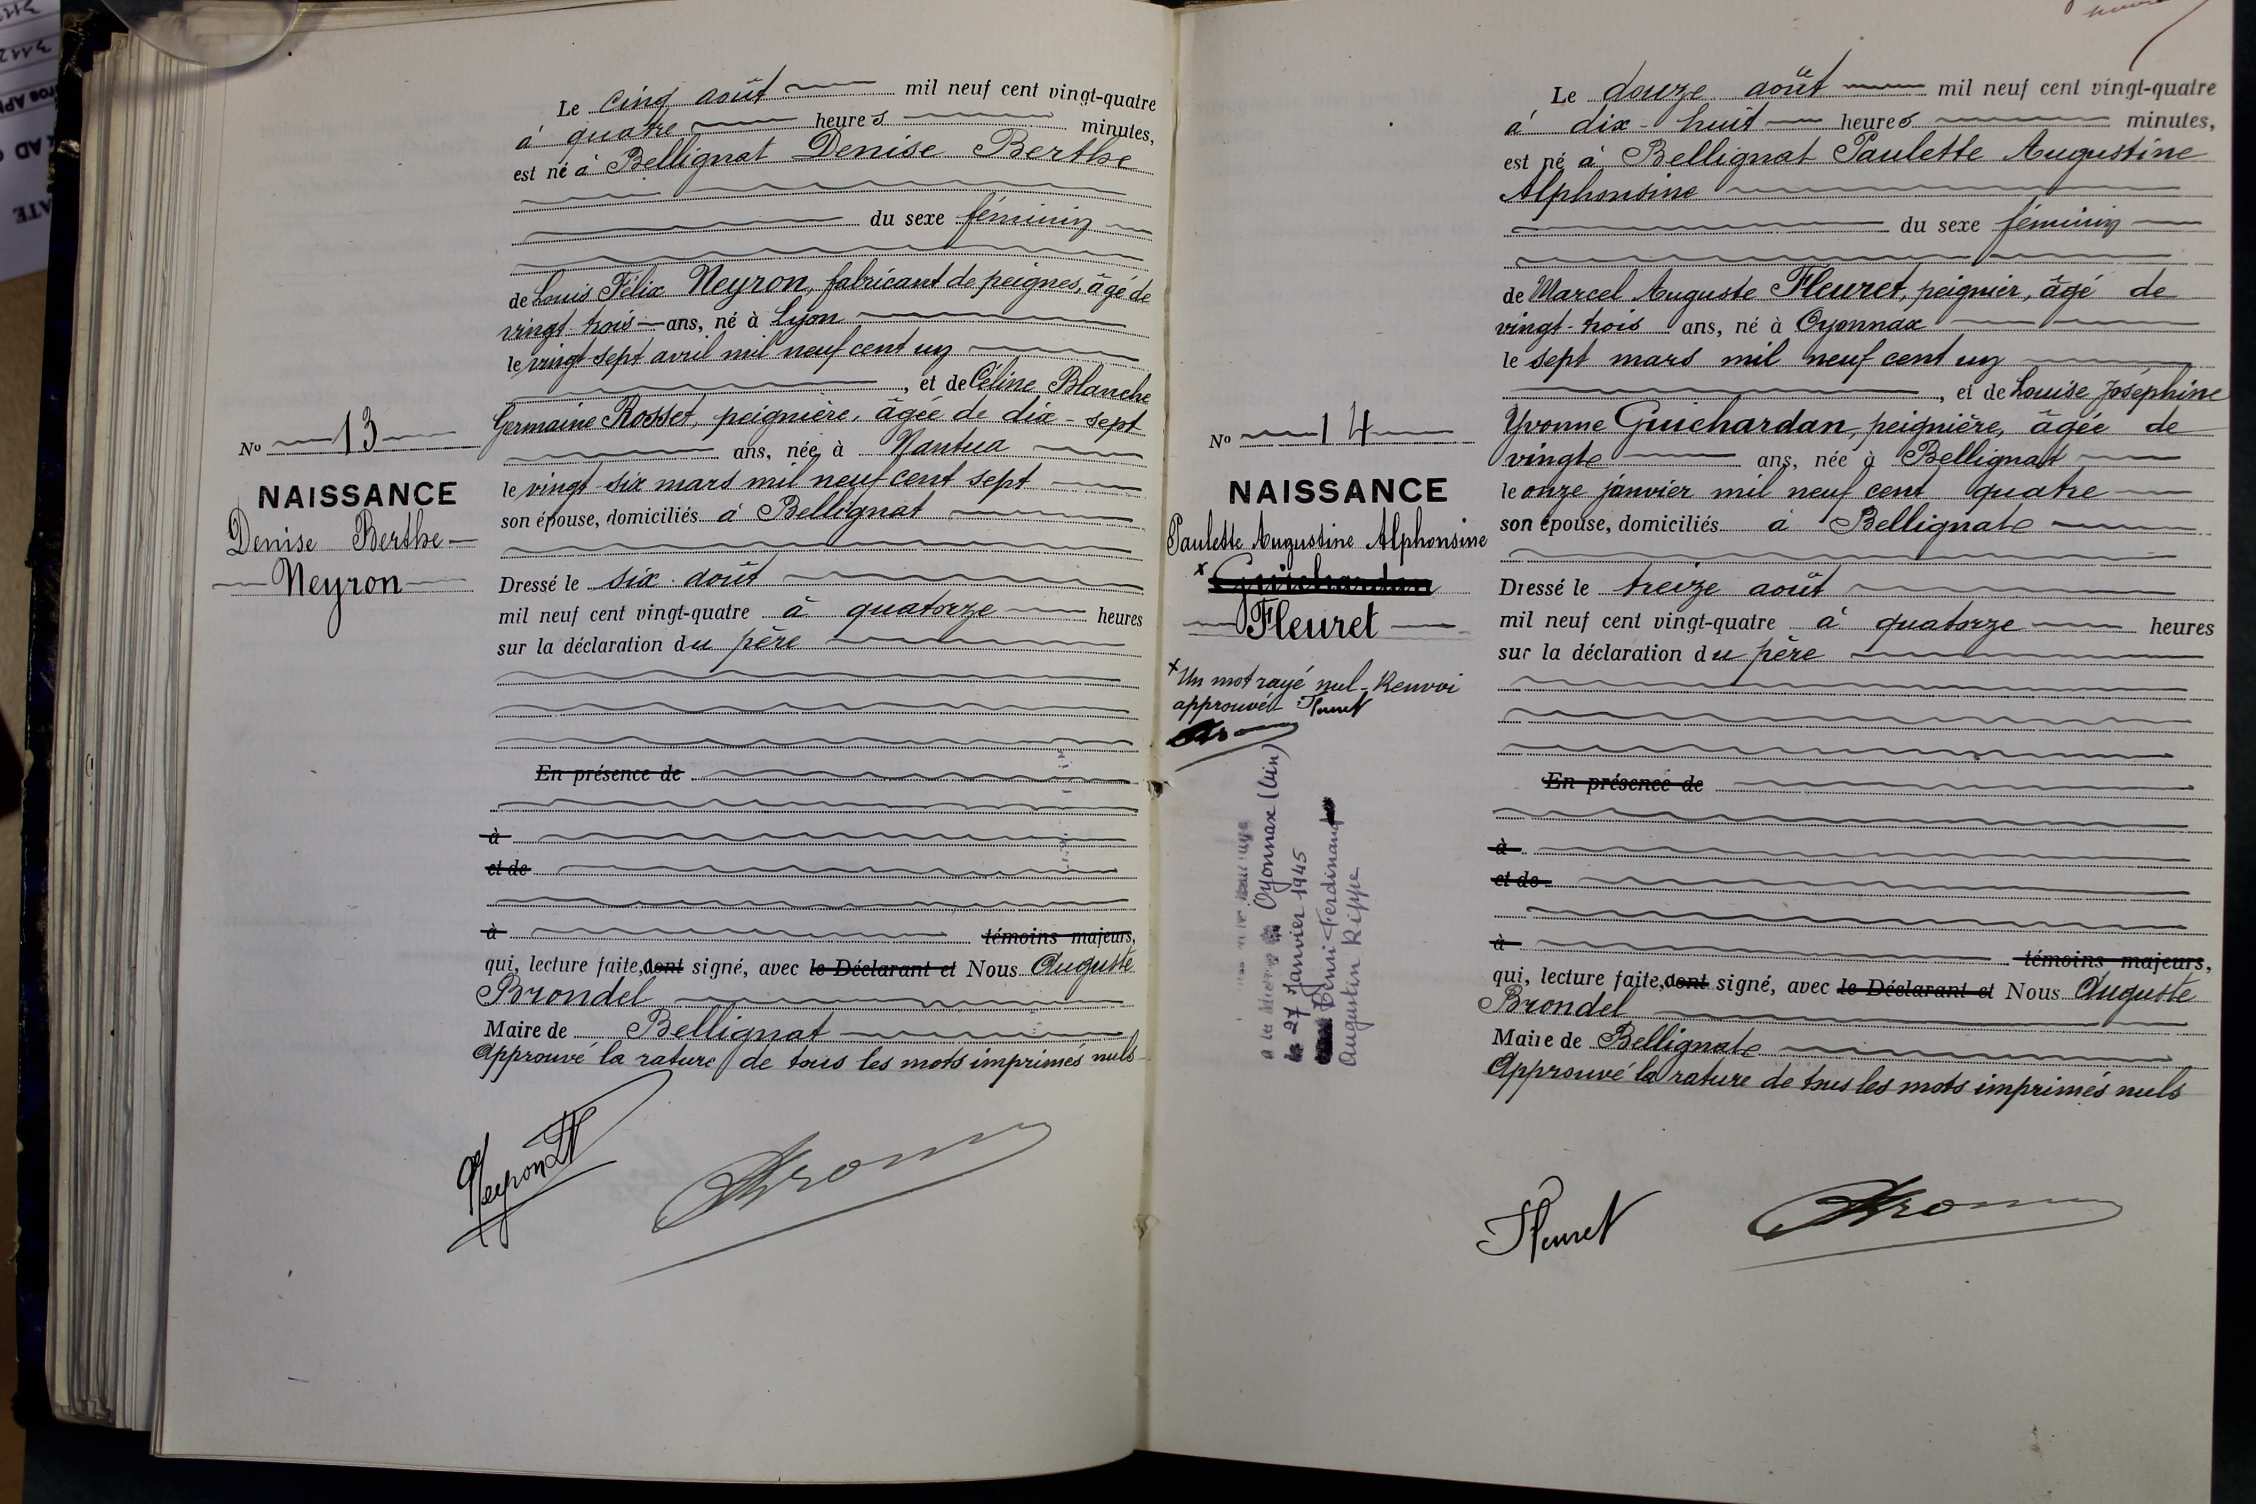 Le cinq août mil neuf cent vingt-quatre
à quatre heures minutes,
est né à Bellignat Denise Berthe
du sexe féminin
de Louis Félix Neyron, fabricant de peignes, âgé de
vingt-trois ans, né à Lyon
le vingt-sept avril mil neuf cent un
, et de Céline Blanche
Germaine Rosset, peignière, âgée de dix-sept
ans, née à Nantua
le vingt-six mars mil neuf cent sept
son épouse, domiciliés à Bellignat
Dressé le six août
mil neuf cent vingt-quatre à quatorze heures
sur la déclaration du père
En présence de
à
et de
à témoins majeurs,
qui, lecture faite, dont signé, avec le Déclarant et Nous Auguste
Brondel
Maire de Bellignat
Approuvé la rature de tous les mots imprimés nuls
No 13
NAISSANCE
Denise Berthe
Neyron
Neyron
Le douze août mil neuf cent vingt-quatre
à dix-huit heures minutes,
est né à Bellignat Paulette Augustine
Alphonsine
du sexe féminin
de Marcel Auguste Fleuret, peignier, âgé de
vingt-trois ans, né à Oyonnax
le sept mars mil neuf cent un
, et de Louise Joséphine
Yvonne Guichardan, peignière, âgée de
vingt ans, née à Bellignat
le onze janvier mil neuf cent quatre
son épouse, domiciliés à Bellignat
Dressé le treize août
mil neuf cent vingt-quatre à quatorze heures
sur la déclaration du père
En présence de
à
et de
à témoins majeurs,
qui, lecture faite, dont signé, avec le Déclarant et Nous Auguste
Brondel
Maire de Bellignat
Approuvé la rature de tous les mots imprimés nuls
No 14
NAISSANCE
Paulette Augustine Alphonsine
x Guichardan
Fleuret
x Un mot rayé nul - Renvoi
approuvé Fleuret
Oyonnax (Ain)
le 27 Janvier 1945
Denis Ferdinand
Augustin Rippe
Fleuret